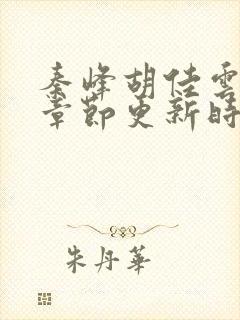 秦峰胡佳雲
章節更新時
朱丹華